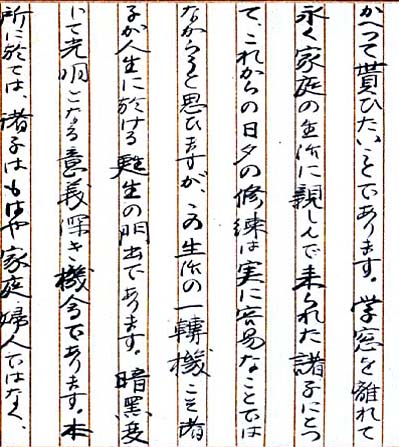 かへつて貰ひたいことであります。学窓を離れて
永く家庭の生活に親しんで来られた諸子にとつ
て、これからの日夕の修練は実に容易なことでは
なからうと思ひますが、この生活の一轉機こそ諸
子が人生に於ける甦生の門出であります。暗黒変
じて光明となる意義深き機会であります。本
所に於ては、諸子はもはや家庭婦人ではなく、